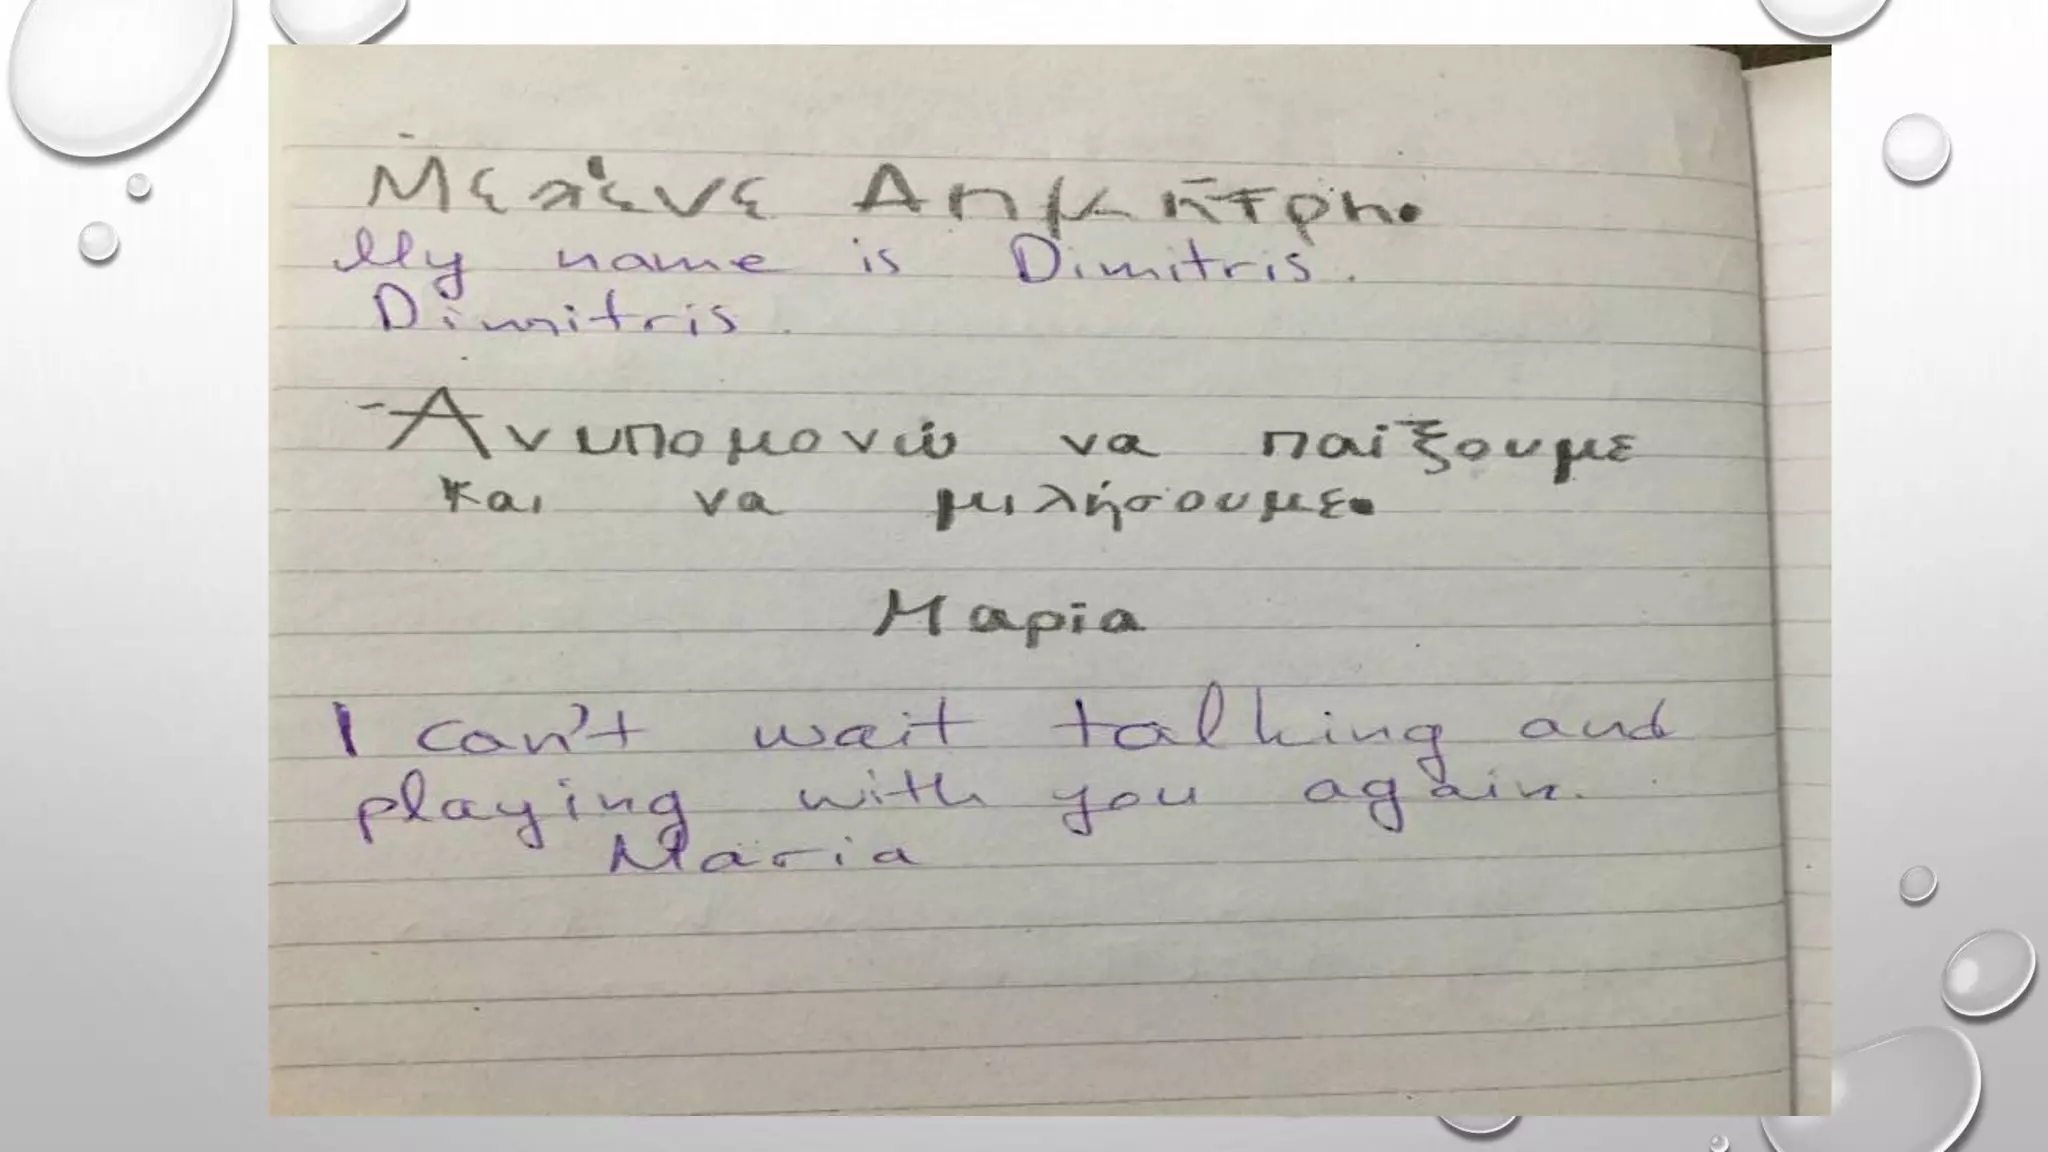 Μελένε Δημήτρη.
My name is Dimitris.
Dimitris.
-Ανυπομονώ να παίξουμε
και να μιλήσουμε.
Μαρία
I can't wait talking and
playing with you again.
Maria